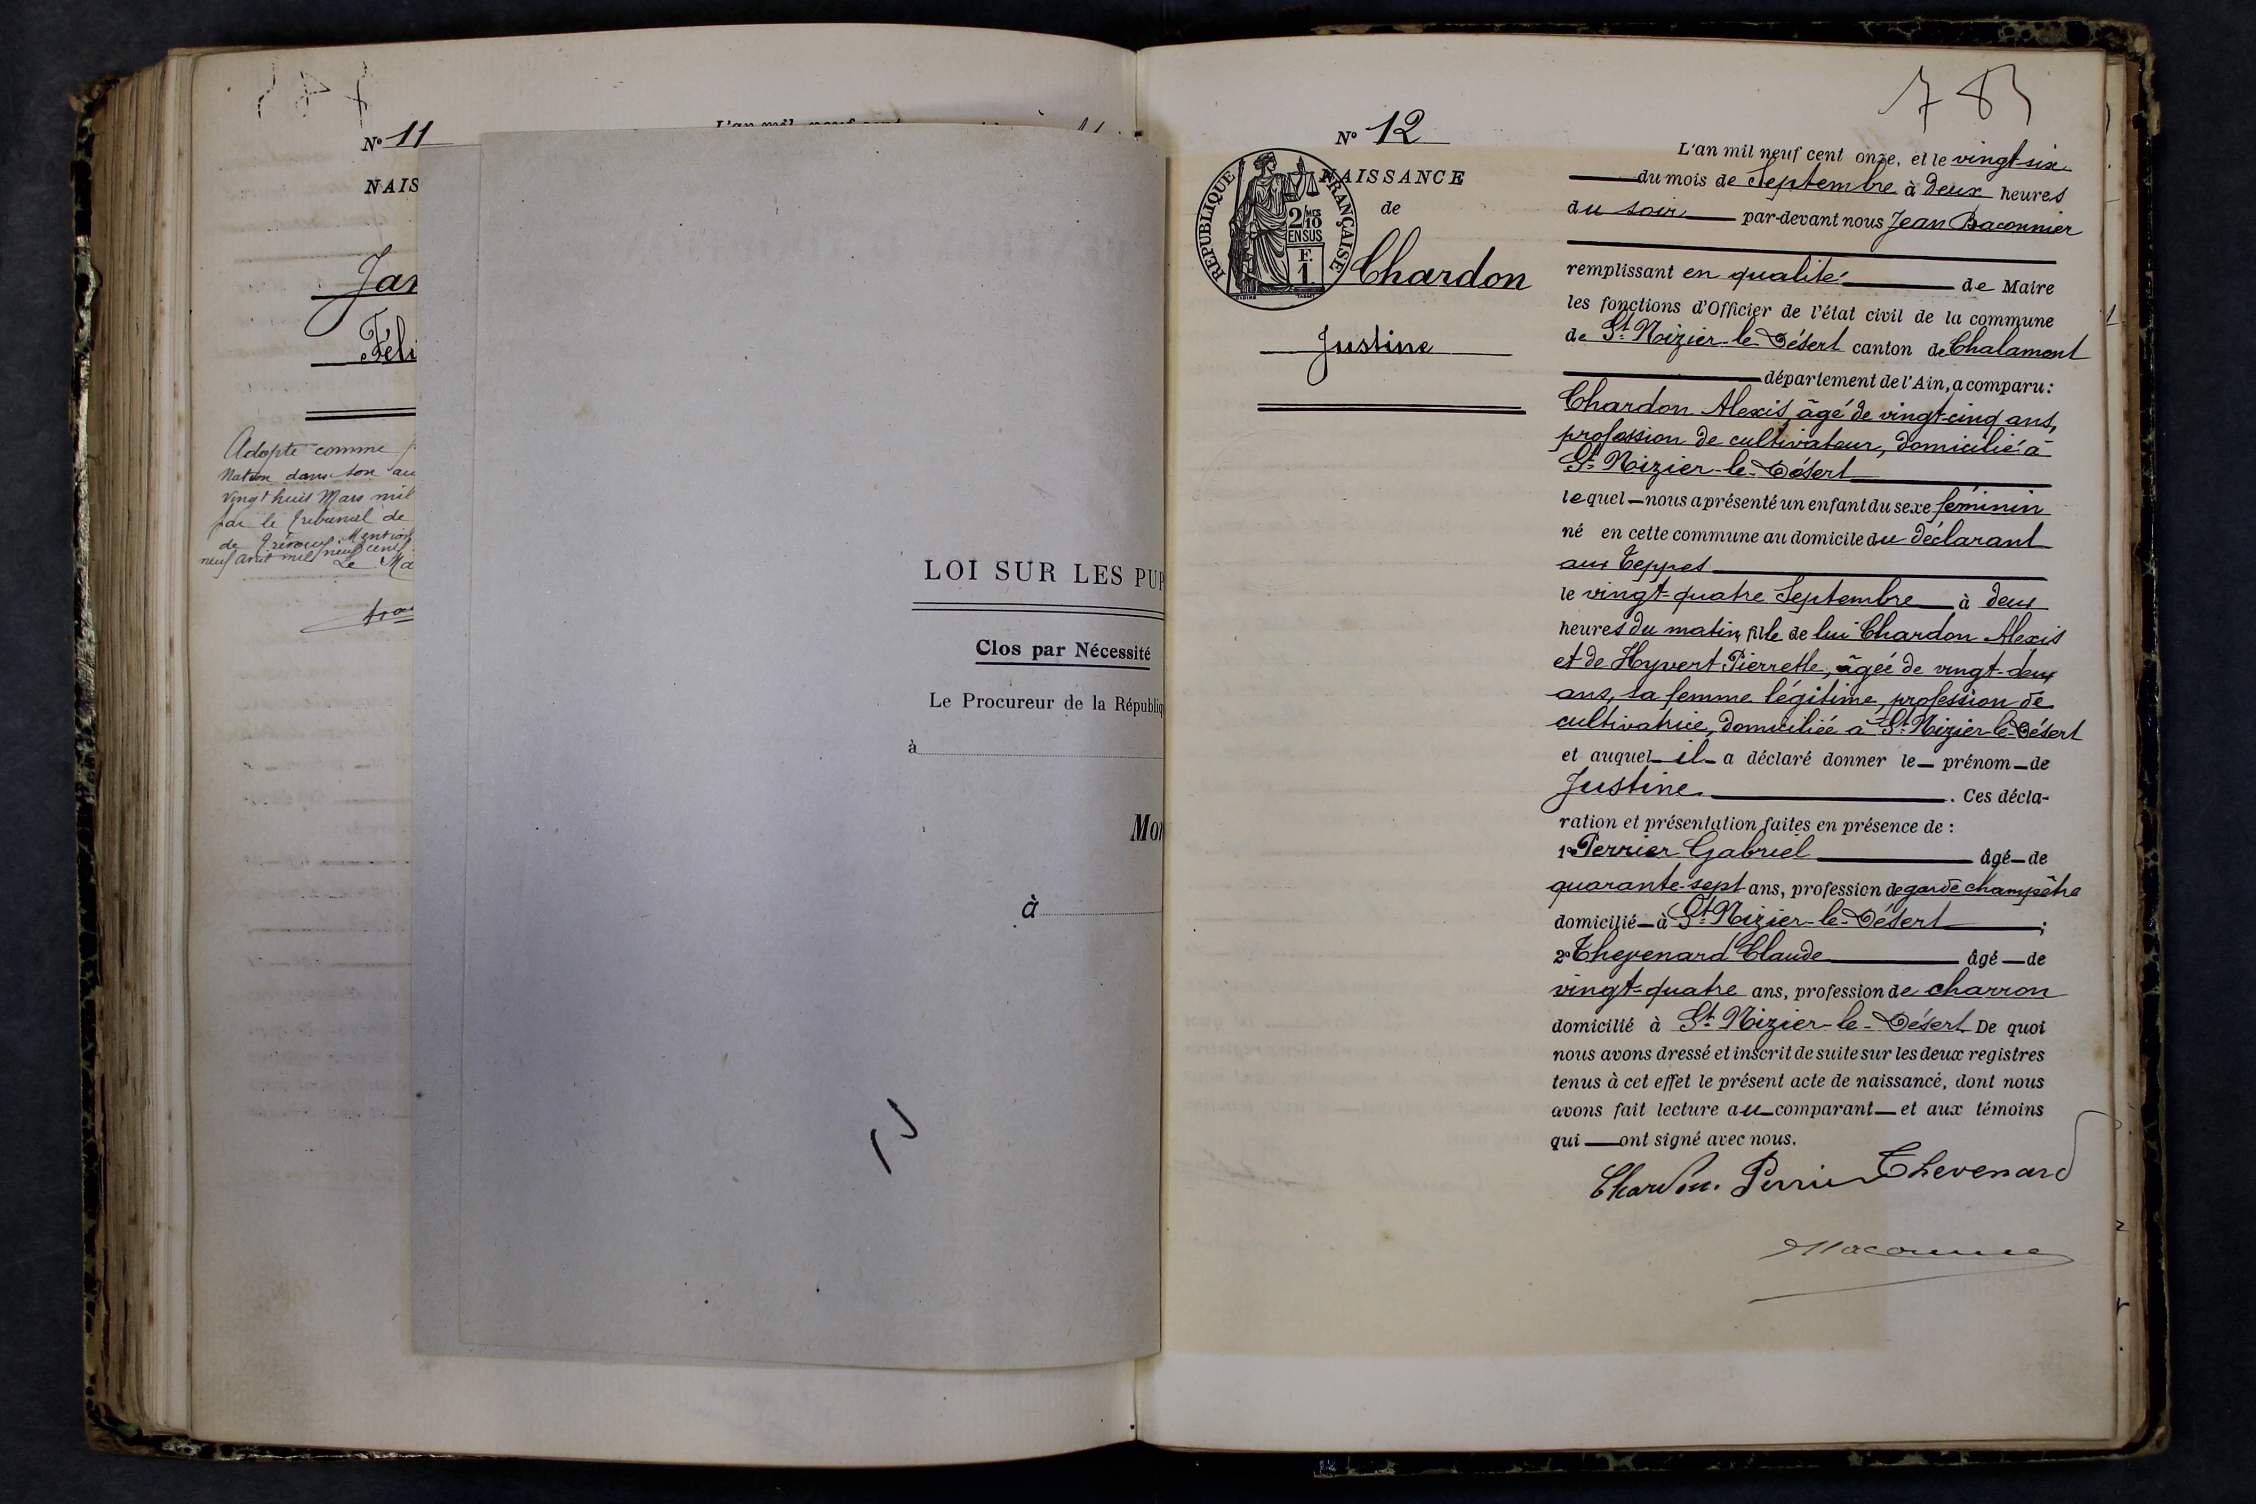 No 11
NAIS
Jan
Féli
Adopté comme
Nation dans son au
vingt huit Mars mil
par le tribunal de
de Trévoux Mention
neuf avril mil neuf cent
Le Ma
LOI SUR LES PUP
Clos par Nécessité
Le Procureur de la Républiq
à
Mon
à
783
No 12
NAISSANCE
de
RÉPUBLIQUE FRANÇAISE
2/10 MES
EN SUS
F.
1.
Chardon
Justine
L'an mil neuf cent onze, et le vingt-six
du mois de Septembre à deux heures
du soir par-devant nous Jean Baconnier
remplissant en qualité de Maire
les fonctions d'Officier de l'état civil de la commune
de St Nizier-le-Désert canton de Chalamont
département de l'Ain, a comparu :
Chardon Alexis, âgé de vingt-cinq ans,
profession de cultivateur, domicilié à
St Nizier-le-Désert
lequel nous a présenté un enfant du sexe féminin
né en cette commune au domicile du déclarant
aux Teppes
le vingt-quatre Septembre à deux
heures du matin, fille de lui Chardon Alexis
et de Hyvert Pierrette, âgée de vingt-deux
ans, sa femme légitime, profession de
cultivatrice, domiciliée à St Nizier-le-Désert
et auquel il a déclaré donner le prénom de
Justine. Ces décla-
ration et présentation faites en présence de :
1o Perrier Gabriel âgé de
quarante-sept ans, profession de garde champêtre
domicilié à St Nizier-le-Désert ;
2o Thevenard Claude âgé de
vingt-quatre ans, profession de charron
domicilié à St Nizier-le-Désert De quoi
nous avons dressé et inscrit de suite sur les deux registres
tenus à cet effet le présent acte de naissance, dont nous
avons fait lecture au comparant et aux témoins
qui ont signé avec nous.
Chardon. Perrier Thevenard
Baconnier